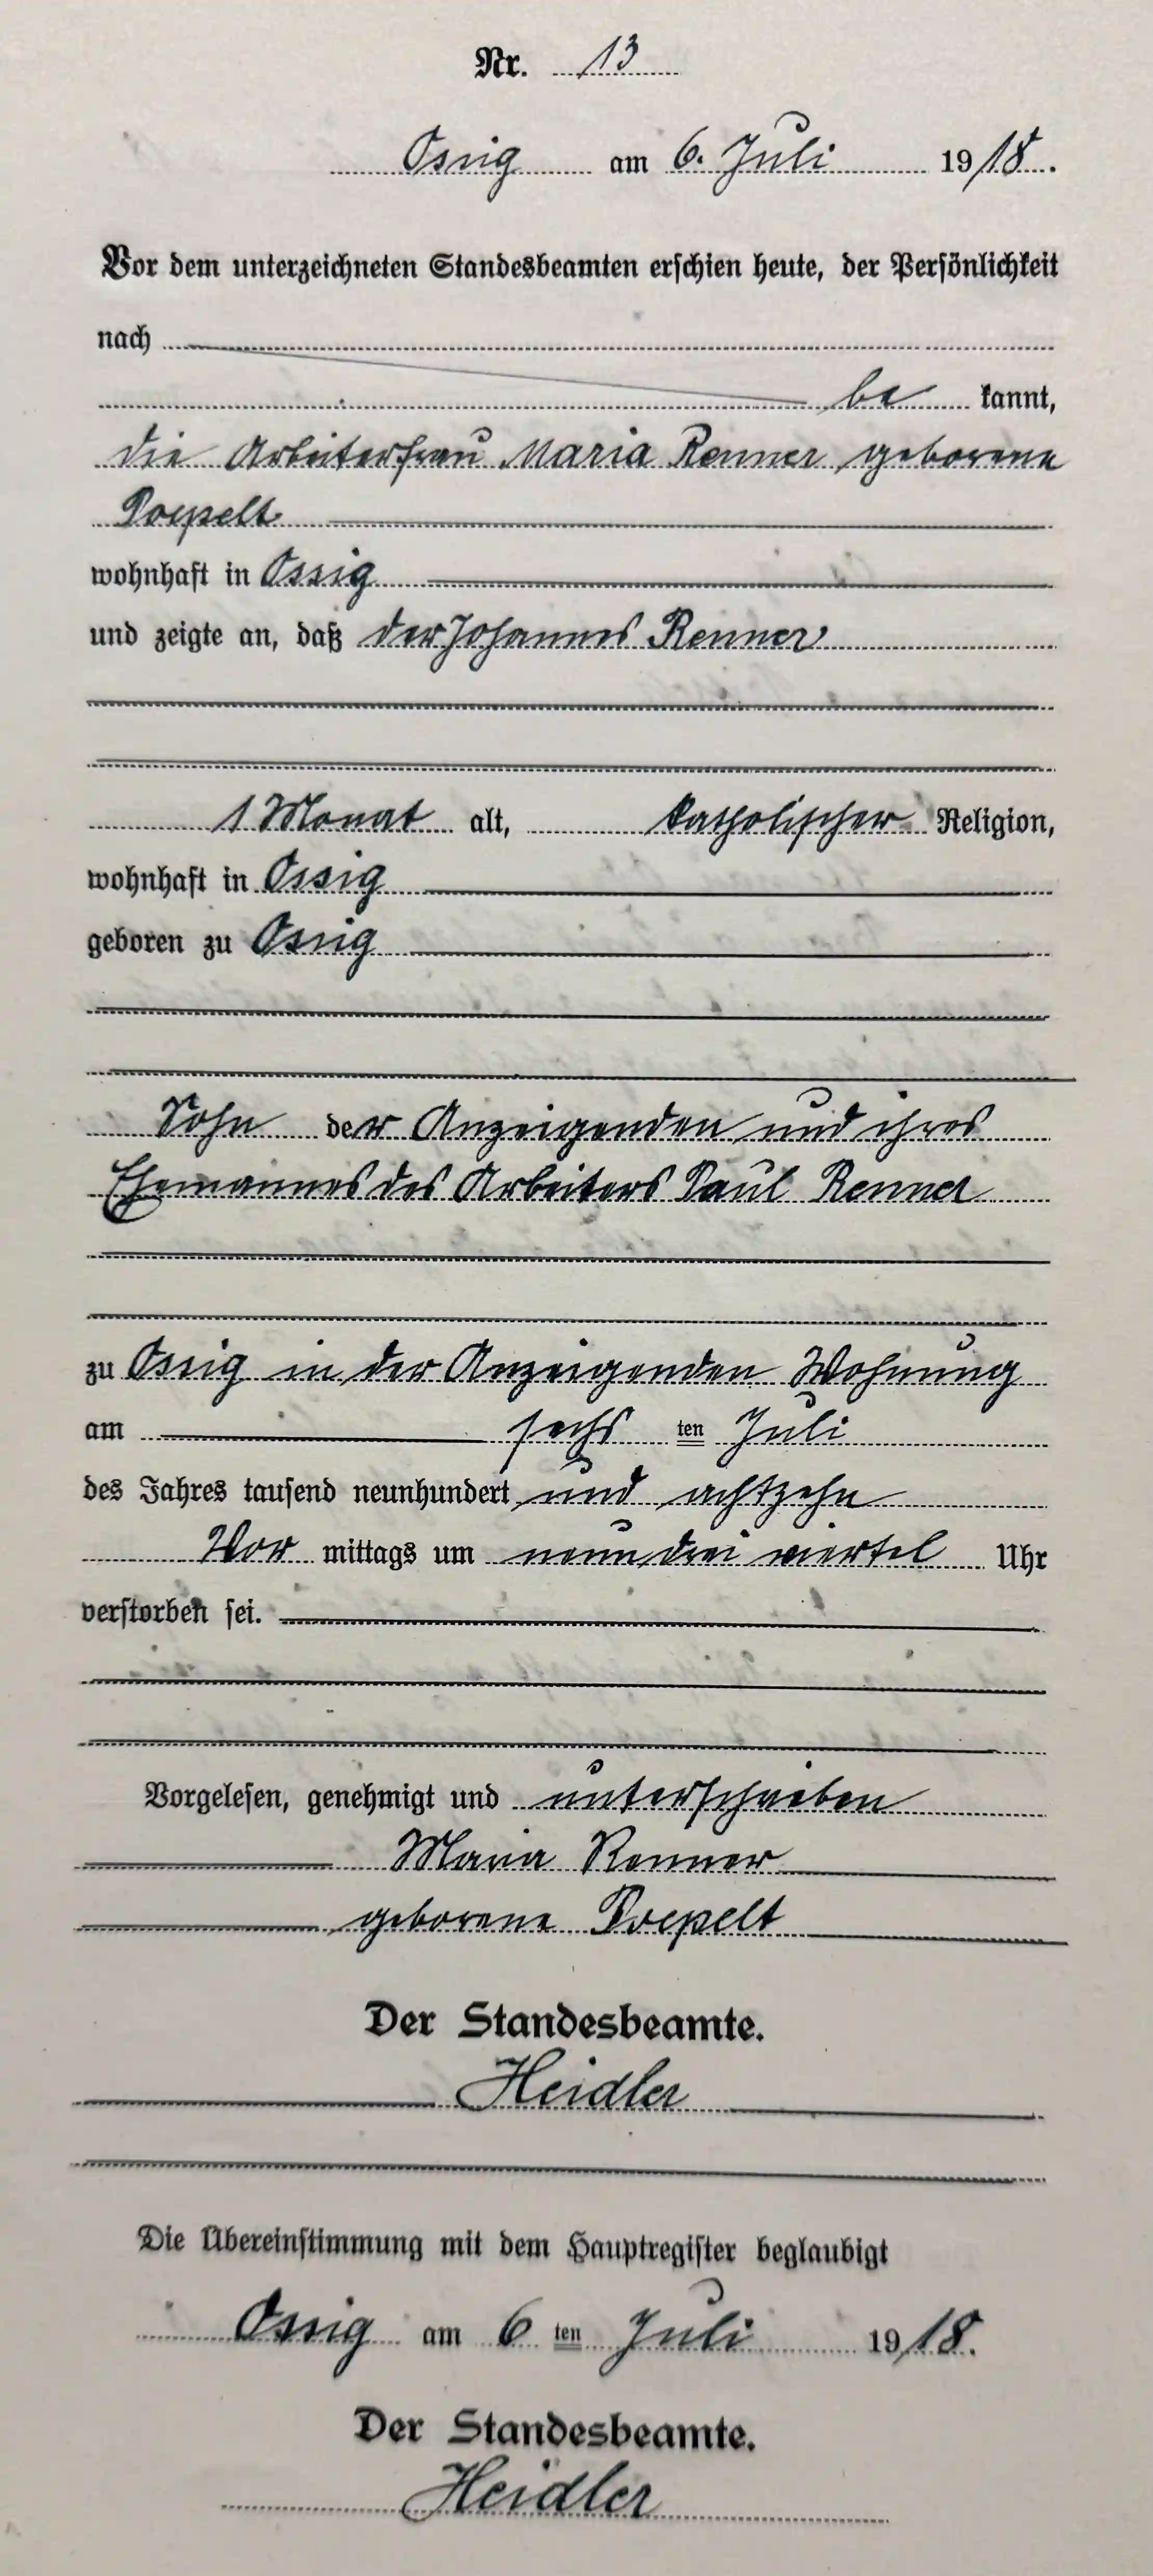 Nr. 13
Ossig am 6. Juli 1918.
Vor dem unterzeichneten Standesbeamten erschien heute, der Persönlichkeit
nach
be kannt,
die Arbeiterfrau Maria Renner geborene
Poepelt
wohnhaft in Ossig
und zeigte an, daß der Johannes Renner
1 Monat alt, katholischer Religion,
wohnhaft in Ossig
geboren zu Ossig
Sohn der Anzeigenden und ihres
Ehemannes des Arbeiters Paul Renner
zu Ossig in der Anzeigenden Wohnung
am sechs ten Juli
des Jahres tausend neunhundert und achtzehn
Vor mittags um neun drei viertel Uhr
verstorben sei.
Vorgelesen, genehmigt und unterschrieben
Maria Renner
geborene Poepelt
Der Standesbeamte.
Heidler
Die Übereinstimmung mit dem Hauptregister beglaubigt
Ossig am 6 ten Juli 1918.
Der Standesbeamte.
Heidler